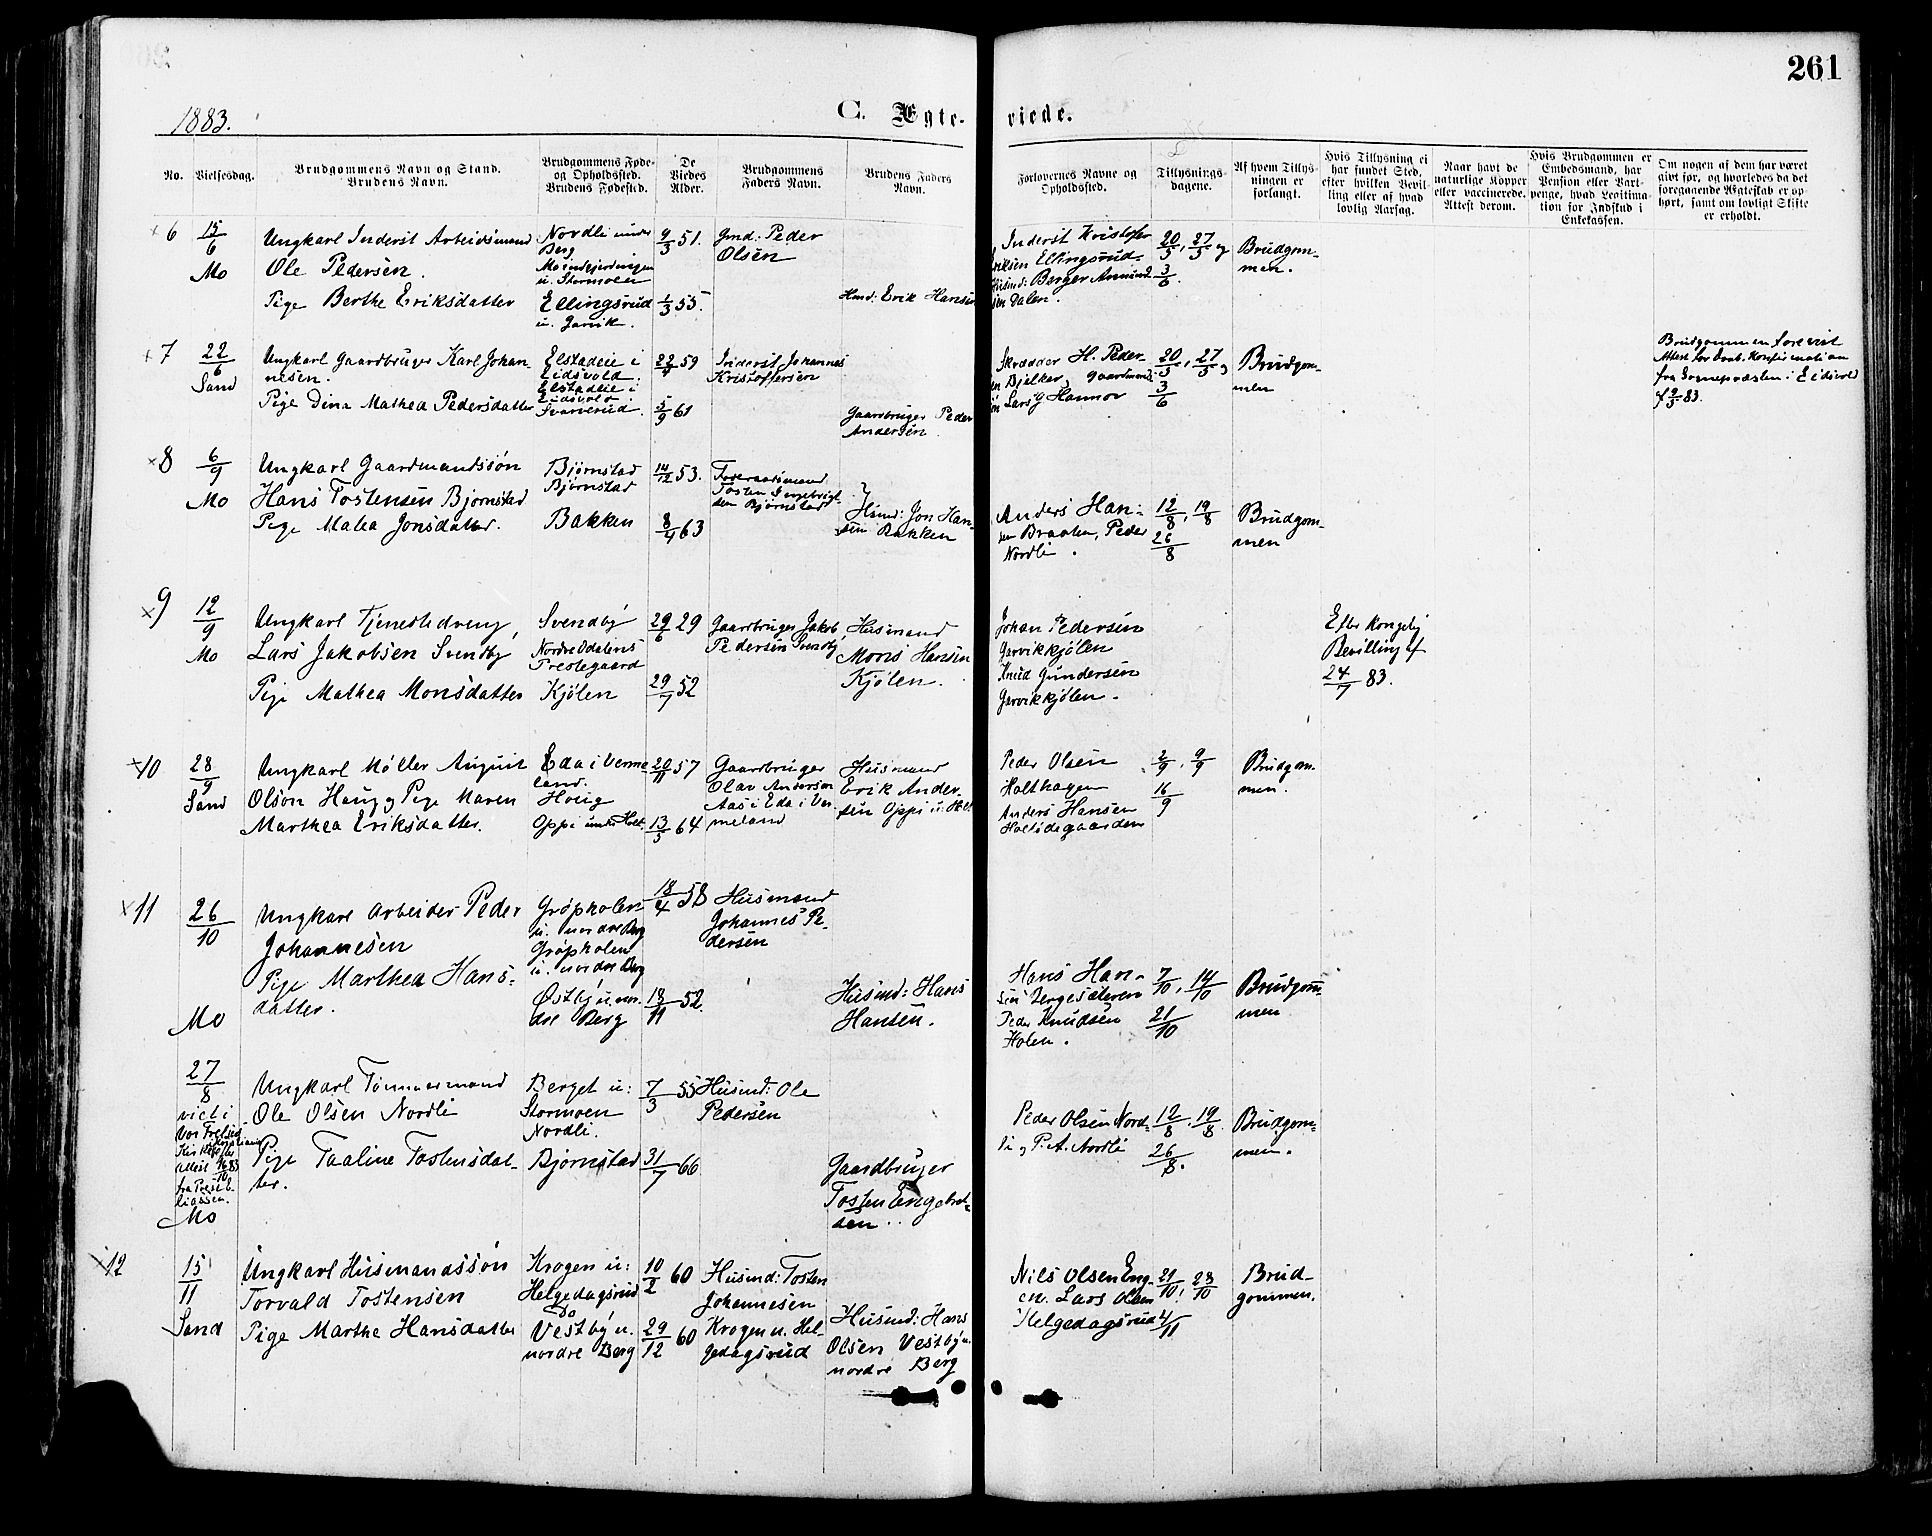 261
1883.
C. Ægte-
viede.
No.
Vielsesdag.
Brudgommens Navn og Stand.
Brudens Navn.
Brudgommens Føde-
og Opholdssted.
Brudens Fødested.
De
Viedes
Alder.
Brudgommens
Faders Navn.
Brudens Faders
Navn.
Forlovernes Navne og
Opholdssted.
Tillysnings-
dagene.
Af hvem Tillys-
ningen er
forlangt.
Hvis Tillysning ei
har fundet Sted,
efter hvilken Bevil-
ling eller af hvad
lovlig Aarsag.
Naar havt de
naturlige Kopper
eller vaccinerede.
Attest derom.
Hvis Brudgommen er
Embedsmand, har
Pension eller Vart-
penge, hvad Legitima-
tion for Indskud i
Enkekassen.
Om nogen af dem har været
gift før, og hvorledes da det
foregaaende Ægteskab er op-
hørt, samt om lovligt Skifte
er erholdt.
6
15/6
Mo
Ungkarl Inderst Arbeidsmand
Ole Pedersen.
Pige Berthe Eriksdatter
Nordli under
Berg
u. Stormoen
Ellingsrud
u. Garvik.
9/3 51.
1/3 55.
Gmd: Peder
Olsen
Hmd: Erik Hansen
Inderst Kristofer
Eriksen Ellingsrud
Husmd: Berger Amund-
sen Dalen.
20/5, 27/5 og
3/6.
Brudgom-
men.
7
22/6
Sand
Ungkarl Gaardbruger Karl Johan-
nesen.
Pige Dina Mathea Pedersdatter
Elstadeie i
Eidsvold
Elstadeie i
Eidsvold
Svarverud.
22/4 59
5/9 61
Inderst Johannes
Kristoffersen
Gaardbruger Peder
Andersen
Skrædder H. Peder-
sen Bjelker, Gaardmand
Lars Hannor
20/5, 27/5 og
3/6
Brudgom-
men
Brudgommen forevist
Attest for Daab, Konfirmation
fra Sognepræsten i Eidsvold
8
6/9
Mo
Ungkarl Gaardmandssøn
Hans Tostensen Bjørnstad
Pige Malea Jonsdatter.
Bjørnstad
Bjørnstad
Bakken
14/12 53.
8/4 63
Foderaadsmand
Tosten Ingebrigt-
sen Bjørnstad
Husmd: Jon Han-
sen Bakken
Anders Han-
sen Braaten, Peder
Nordli.
12/8, 19/8
26/8
Brudgom-
men
9
12/9
Mo
Ungkarl Tjenestedreng,
Lars Jakobsen Svendby
Pige Mathea Monsdatter
Svendby
Nordre Odalens
Prestegaard
Kjølen
29/6 29
29/7 52
Gaardbruger Jakob
Pedersen Svendby
Husmand
Mons Hansen
Kjølen.
Johan Pedersen
Garvikkjølen
Knud Gundersen
Garvikkjølen.
Efter Kongelig
Bevilling af
24/7 83.
10
28/9
Sand
Ungkarl Møller August
Olson Haug og Pige Maren
Marthea Eriksdatter.
Eda i Verme-
land.
Houg
Oppi under Holt
20/11 57
13/5 64
Gaardbruger
Olav Anderson
Aas i Eda i Ver-
meland
Husmand
Erik Ander-
sen Oppi u: Holt
Peder Olsen
Holthagen
Anders Hansen
Holtsdegaarden
2/9, 9/9
16/9
Brudgom-
men.
11
26/10
Mo
Ungkarl Arbeider Peder
Johannesen
Pige Marthea Hans-
datter.
Grøpholen
u. nordre Berg
Grøpholen
u. nordre Berg
Østby u. nor-
dre Berg
18/4 58
18/11 52.
Husmand
Johannes Pe-
dersen
Husmd: Hans
Hansen.
Hans Han-
sen Bergesæteren
Peder Knudsen
Holen.
7/10, 14/10
21/10
Brudgom-
men
27/8
viet i
Vor Frelsers
Mo
Ungkarl Tømmermand
Ole Olsen Nordli
Pige Taaline Tostensdat-
ter.
Berget u:
Stormoen
Nordli.
Bjørnstad
7/3 55
31/7 66
Husmd: Ole
Pedersen
Gaardbruger
Tosten Engebret-
sen
Peder Olsen Nord-
li og P. A. Nordli
12/8, 19/8
26/8.
Brudgom-
men.
12
15/11
Sand
Ungkarl Husmandssøn
Torvald Tostensen
Pige Marthe Hansdatter
Krogen u:
Helgedagsrud
Do
Vestby u.
nordre Berg
10/2 60
29/12 60
Husmd: Tosten
Johannesen
Krogen u. Hel-
gedagsrud
Husmd: Hans
Olsen Vestby u.
nordre Berg
Nils Olsen Eng-
en. Lars Olsen
Helgedagsrud
21/10, 28/10
4/11
Brud-
gommen.